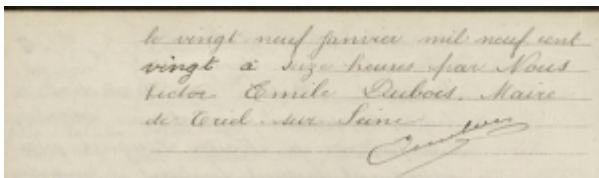 le vingt neuf janvier mil neuf cent
vingt à seize heures par Nous
Victor Emile Dubois, Maire
de Triel-sur Seine